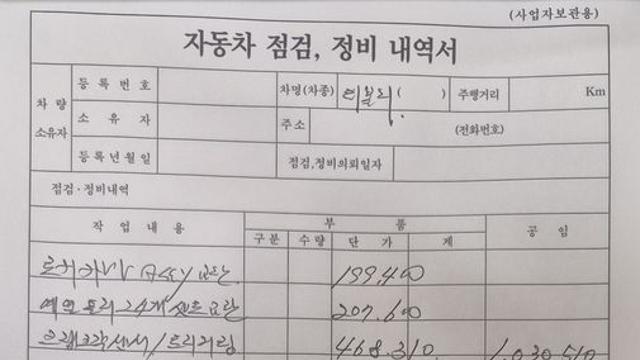 (사업자보관용)
자동차 점검, 정비 내역서
차량 소유자
등록번호 차명(차종) 티볼리 ( ) 주행거리 Km
소유자 주소 (전화번호)
등록년월일 점검,정비의뢰일자
점검·정비내역
작업내용 부품 공임
구분 수량 단가 계
로커카바 ASSY 교환 199,400
메인 도리 24개 세트 교환 207,600
468,310 1,030,510